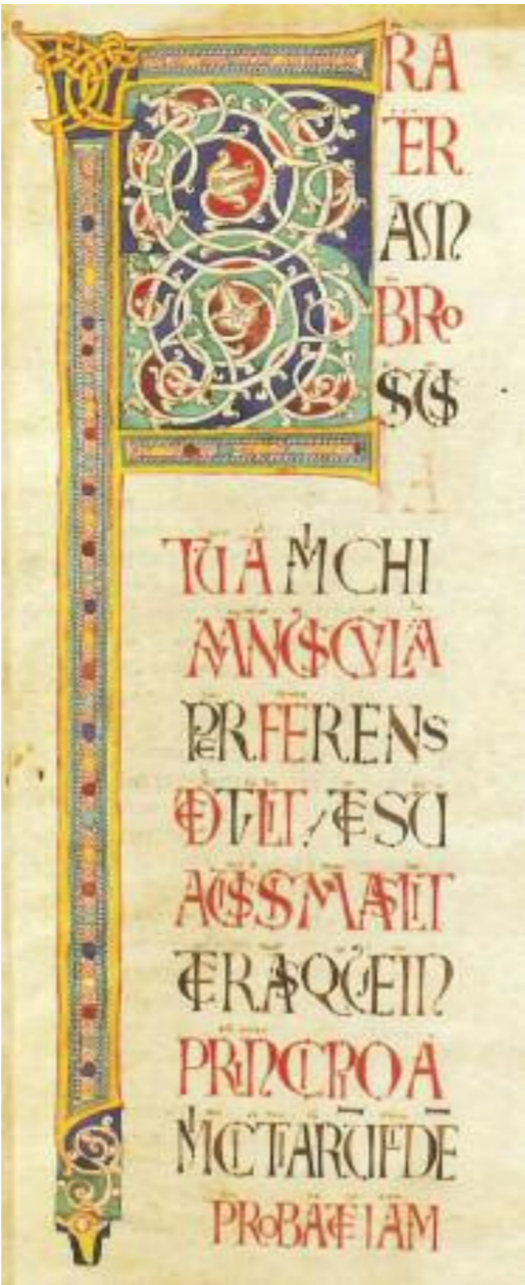 FRA
TER
AM
BRO
SIUS
TUA MICHI
MUNUSCULA
PERFERENS
DETULIT / ET SU
AUISSIMAS LIT
TERAS QUE IN
PRINCIPIO A
MICITIARŪ FIDĒ
PROBATE IAM